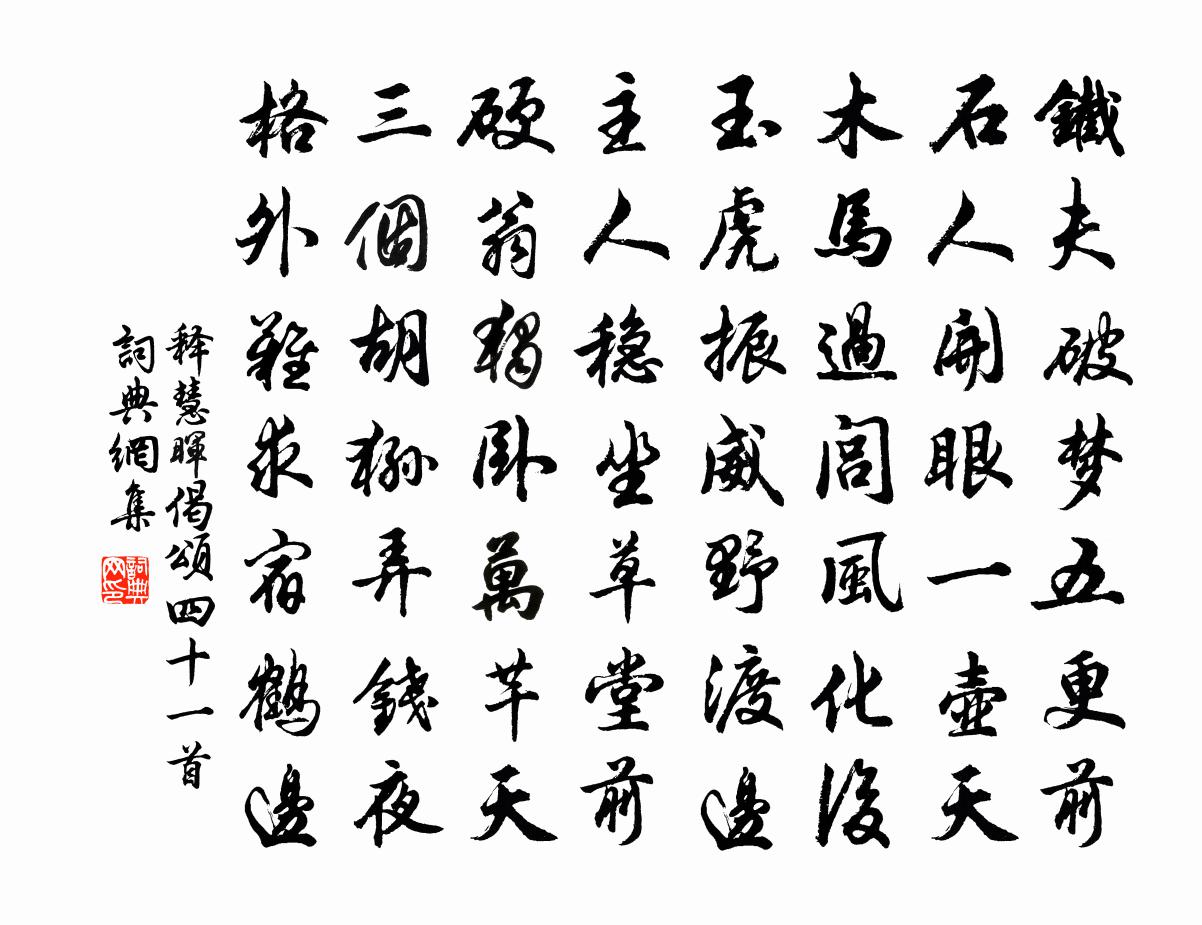 鐵夫破梦五更前
石人開眼一壺天
木馬過閭風化後
玉虎振威野渡邊
主人稳坐草堂前
硬翁獨卧萬芊天
三個胡猻弄錢夜
格外難求宿鶴邊
释慧暉偈頌四十一首
詞典網集
詞典
网印